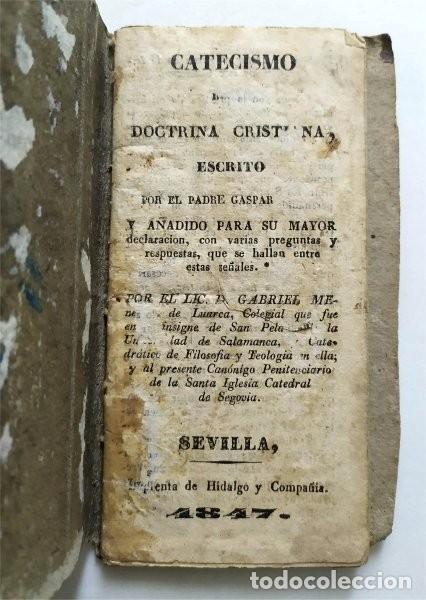 CATECISMO
DOCTRINA CRISTIANA,
ESCRITO
POR EL PADRE GASPAR
Y AÑADIDO PARA SU MAYOR
declaracion, con varias preguntas y
respuestas, que se hallan entre
estas señales. *
POR EL LIC. D. GABRIEL ME-
de Luarca, Colegial que fue
en insigne de San Pela la
Un dad de Salamanca, y Cate-
drático de Filosofia y Teologia en ella;
y al presente Canónigo Penitenciario
de la Santa Iglesia Catedral
de Segovia.
SEVILLA,
Imprenta de Hidalgo y Compañia.
1847.
todocoleccion.net